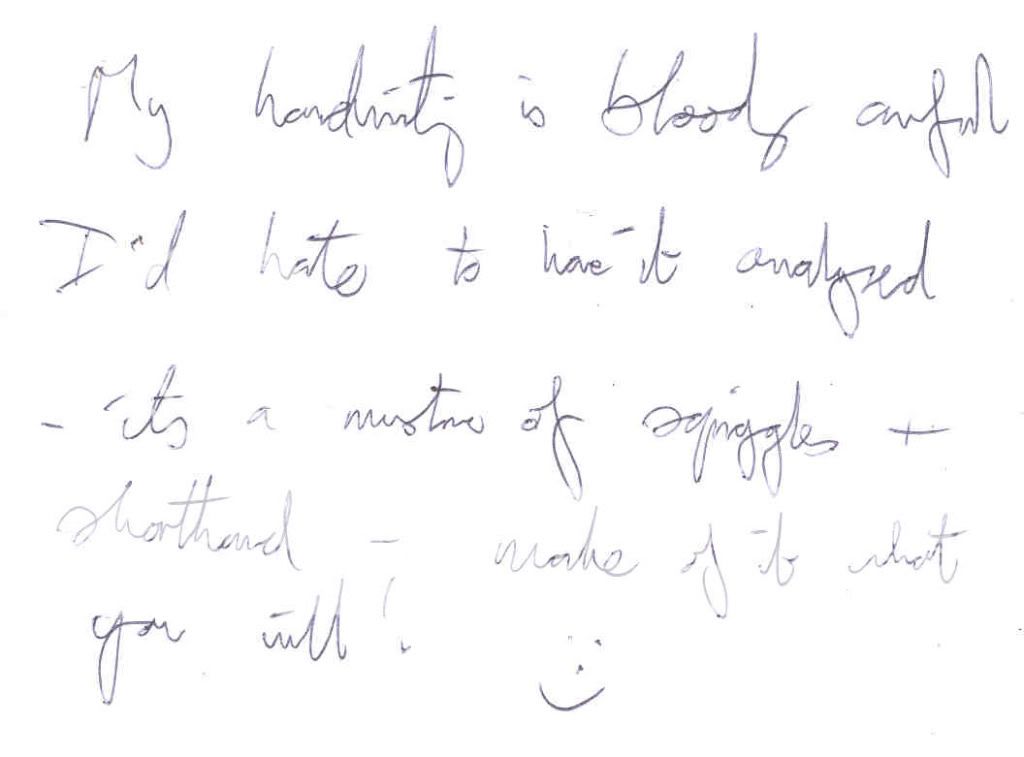 My handwriting is bloody awful
I'd hate to have it analysed
- its a mixture of squiggles +
shorthand - make of it what
you will!